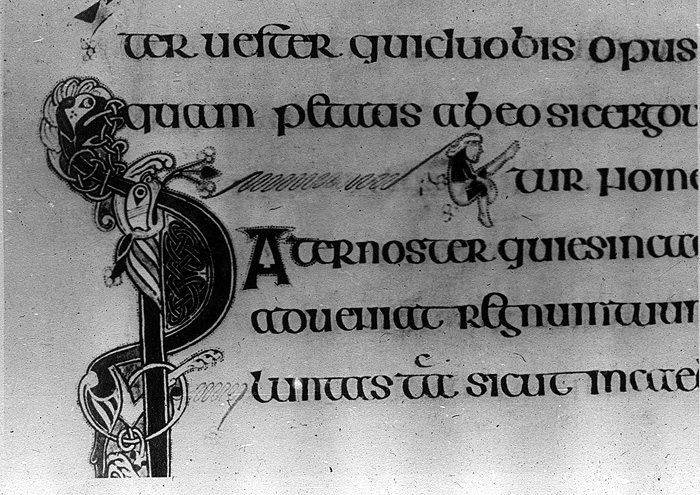 ter uester quiduobis opus
quam petatis abeo sicergou
tur nome
PAternoster quiesincae
adueniat regnumtuum
luntas tua sicut incae